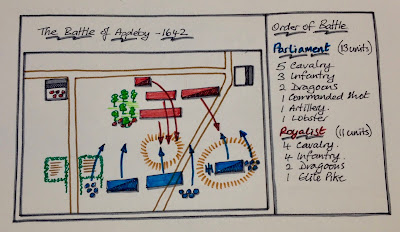 The Battle of Appleby - 1642
Order of Battle
Parliament (13 units)
5 Cavalry
3 Infantry
2 Dragoons
1 Commanded Shot
1 Artillery
1 Lobster
Royalist (11 units)
4 Cavalry.
4 Infantry.
2 Dragoons
1 Elite Pike